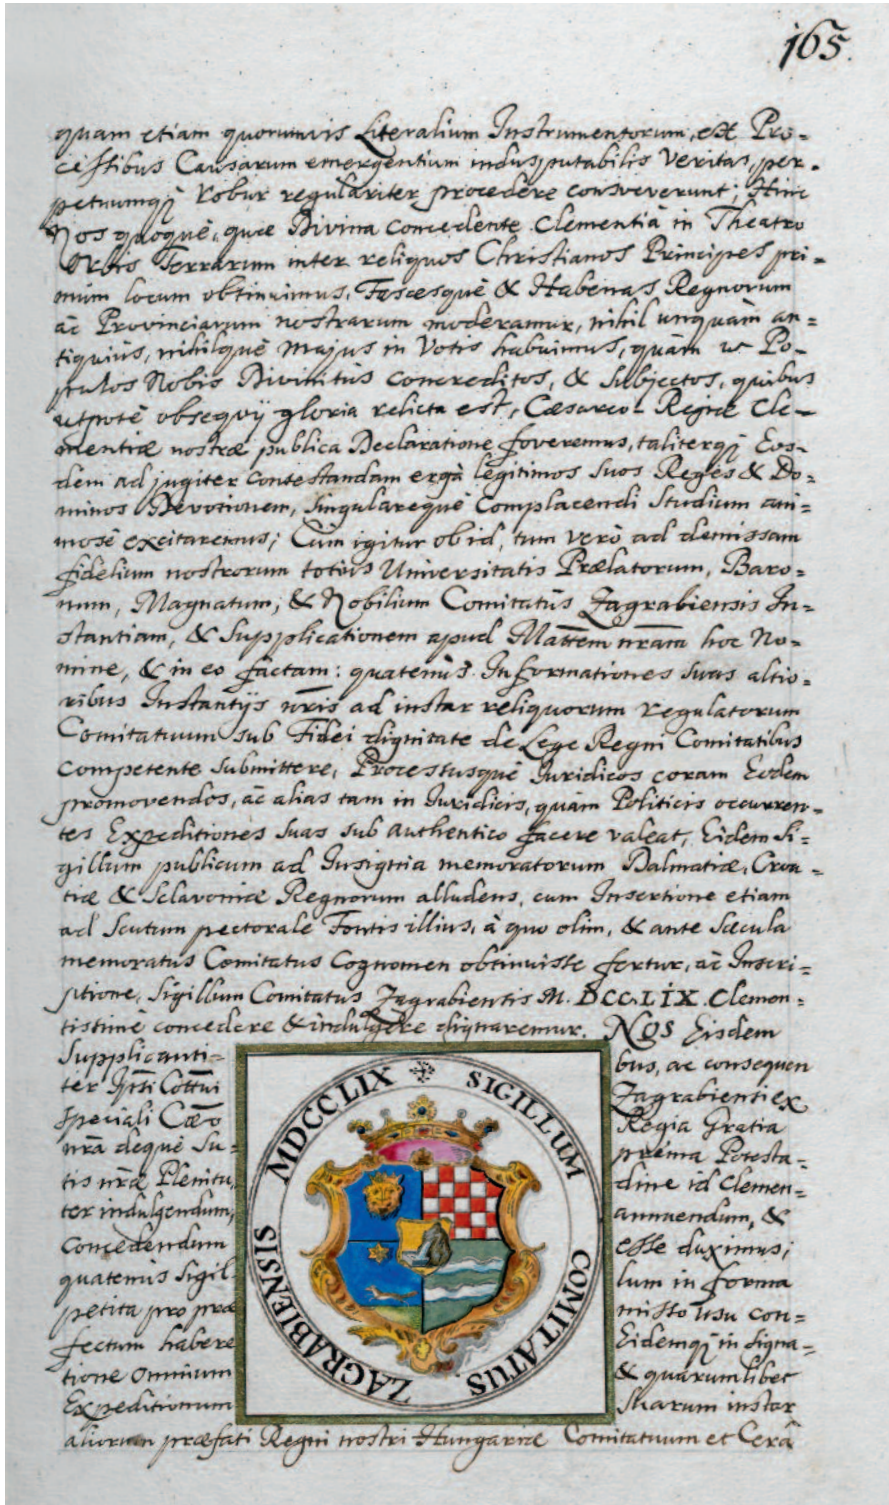 165.
quam etiam quorumvis Literalium Instrumentorum, est Pro-
cessibus Causarum emergentium indisputabilis Veritas, per-
petuumq; robur regulariter procedere consveverunt; Hinc
Nos quoquè, quæ Divina concedente Clementiâ in Theatro
Orbis Terrarum inter reliquos Christianos Principes pri=
mum locum obtinuimus, Fascesquè & Habenas Regnorum
ac Provinciarum nostrarum moderamur, nihil unquàm an=
tiquiùs, nihilquè majus in Votis habuimus, quàm ut Po-
pulos Nobis Divinitùs concreditos, & Subjectos, quibus
utpotè obsequij gloria relicta est, Cæsareo-Regiæ Cle-
mentiæ nostræ publica Declaratione foveremus, taliterq; Eos-
dem ad jugiter contestandam ergà legitimos suos Reges & Do-
minos Devotionem, Singularequè Complacendi Studium ani-
mosè excitaremus; Cùm igitur ob id, tum verò ad demissam
fidelium nostrorum totius Universitatis Prælatorum, Baro-
num, Magnatum, & Nobilium Comitatûs Zagrabiensis In-
stantiam, & Supplicationem apud Mattem nram hoc No-
mine, & in eo factam: quatenùs Informationes suas altio-
ribus Instantijs nris ad instar reliquorum regulatorum
Comitatuum sub Fidei dignitate de Lege Regni Comitatibus
competente submittere, Processusquè Iuridicos coram Eodem
promovendos, ac alias tam in Iuridicis, quàm Politicis occurren-
tes Expeditiones suas sub authentico facere valeat, Eidem Si-
gillum publicum ad Insignia memoratorum Dalmatiæ, Croa-
tiæ & Sclavoniæ Regnorum alludens, cum Insertione etiam
ad Scutum pectorale Fontis illius, à quo olim, & ante sæcula
memoratus Comitatus Cognomen obtinuisse fertur, ac Inscri-
ptione, Sigillum Comitatus Zagrabiensis M. DCC.LIX. Clemen-
tissimè concedere & indulgere dignaremur. NOS Eisdem
Supplicanti- bus, ac consequen
ter Zagrabiensi ex
speciali Regia Gratia
nrâ dequè Su- prema Potesta-
tis nræ Plenitu- dine id Clemen-
ter indulgendum, annuendum, &
concedendum esse duximus;
quatenùs Sigil- lum in forma
petita pro præ misso usu con-
fectum habere Eidemq; in signa-
tione omnium & quarumlibet
Expeditionum Suarum instar
aliorum præfati Regni nostri Hungariæ Comitatuum et Cerâ
SIGILLUM COMITATUS ZAGRABIENSIS MDCCLIX